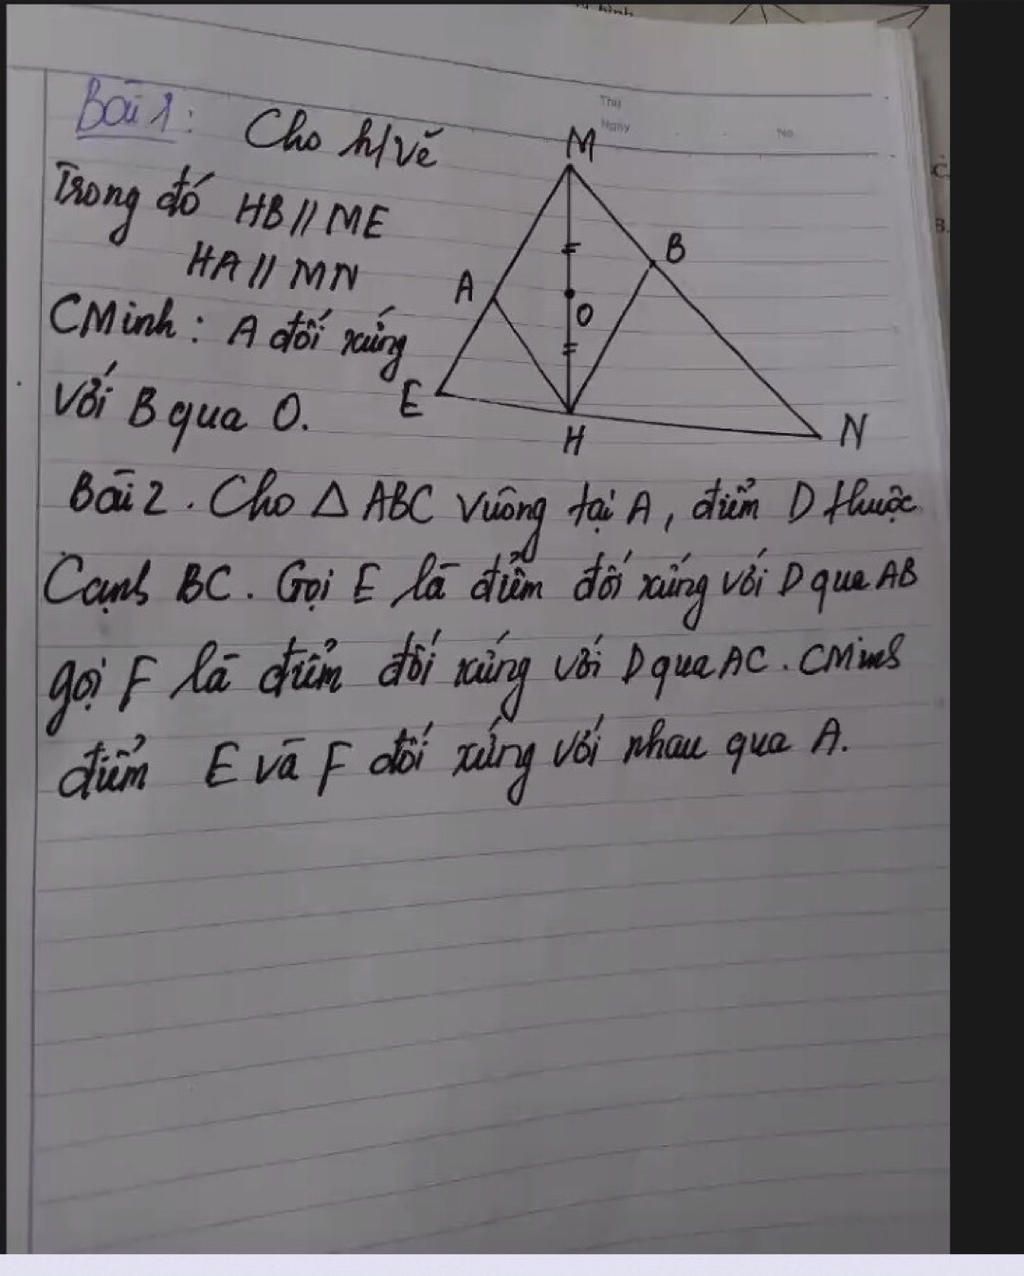 Bài 1: Cho h/vẽ
Trong đó HB // ME
HA // MN
CMinh: A đối xứng
với B qua O.
Thứ
Ngày
No
M
A
B
O
E
H
N
Bài 2. Cho △ ABC vuông tại A, điểm D thuộc
Cạnh BC. Gọi E là điểm đối xứng với D qua AB
gọi F là điểm đối xứng với D qua AC. CMinh
điểm E và F đối xứng với nhau qua A.